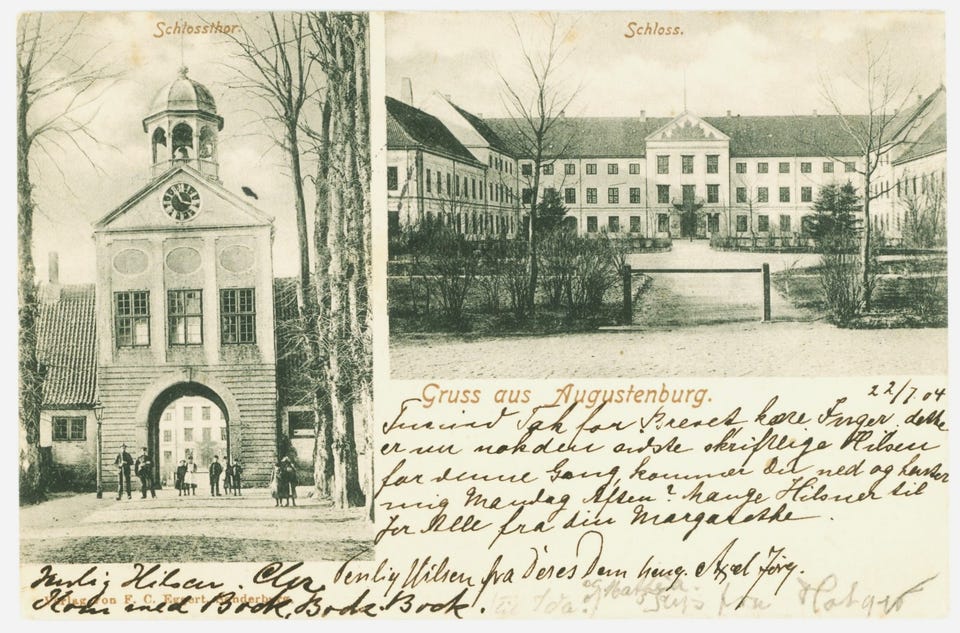 Schlossthor.
Schloss.
Gruss aus Augustenburg.
22/7. 04
Tusind Tak for Brevet kære Inger, dette
er nu nok den sidste skriftlege Hilsen
for denne Gang, kommer Du ned og henter
mig Mandag Aften? Mange Hilsner til
Jer Alle fra din Margarethe.
Venlig Hilsen fra Deres Dem heng. Axel Jörg.
Venlig Hilsen. Chr.
Kom med Bock, Bock, Bock.
Verlag von F. C. Eggert, Sonderburg
til Ida
fra